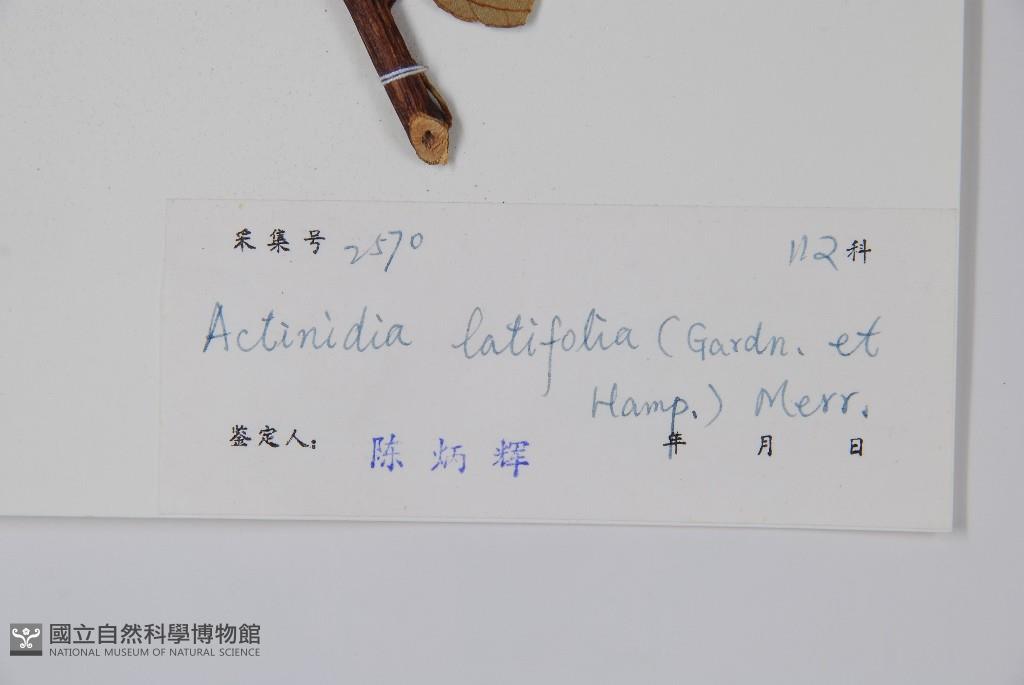 采集号 2570 112科
Actinidia latifolia (Gardn. et
Hamp.) Merr.
鉴定人: 陈炳辉 年 月 日
國立自然科學博物館
NATIONAL MUSEUM OF NATURAL SCIENCE